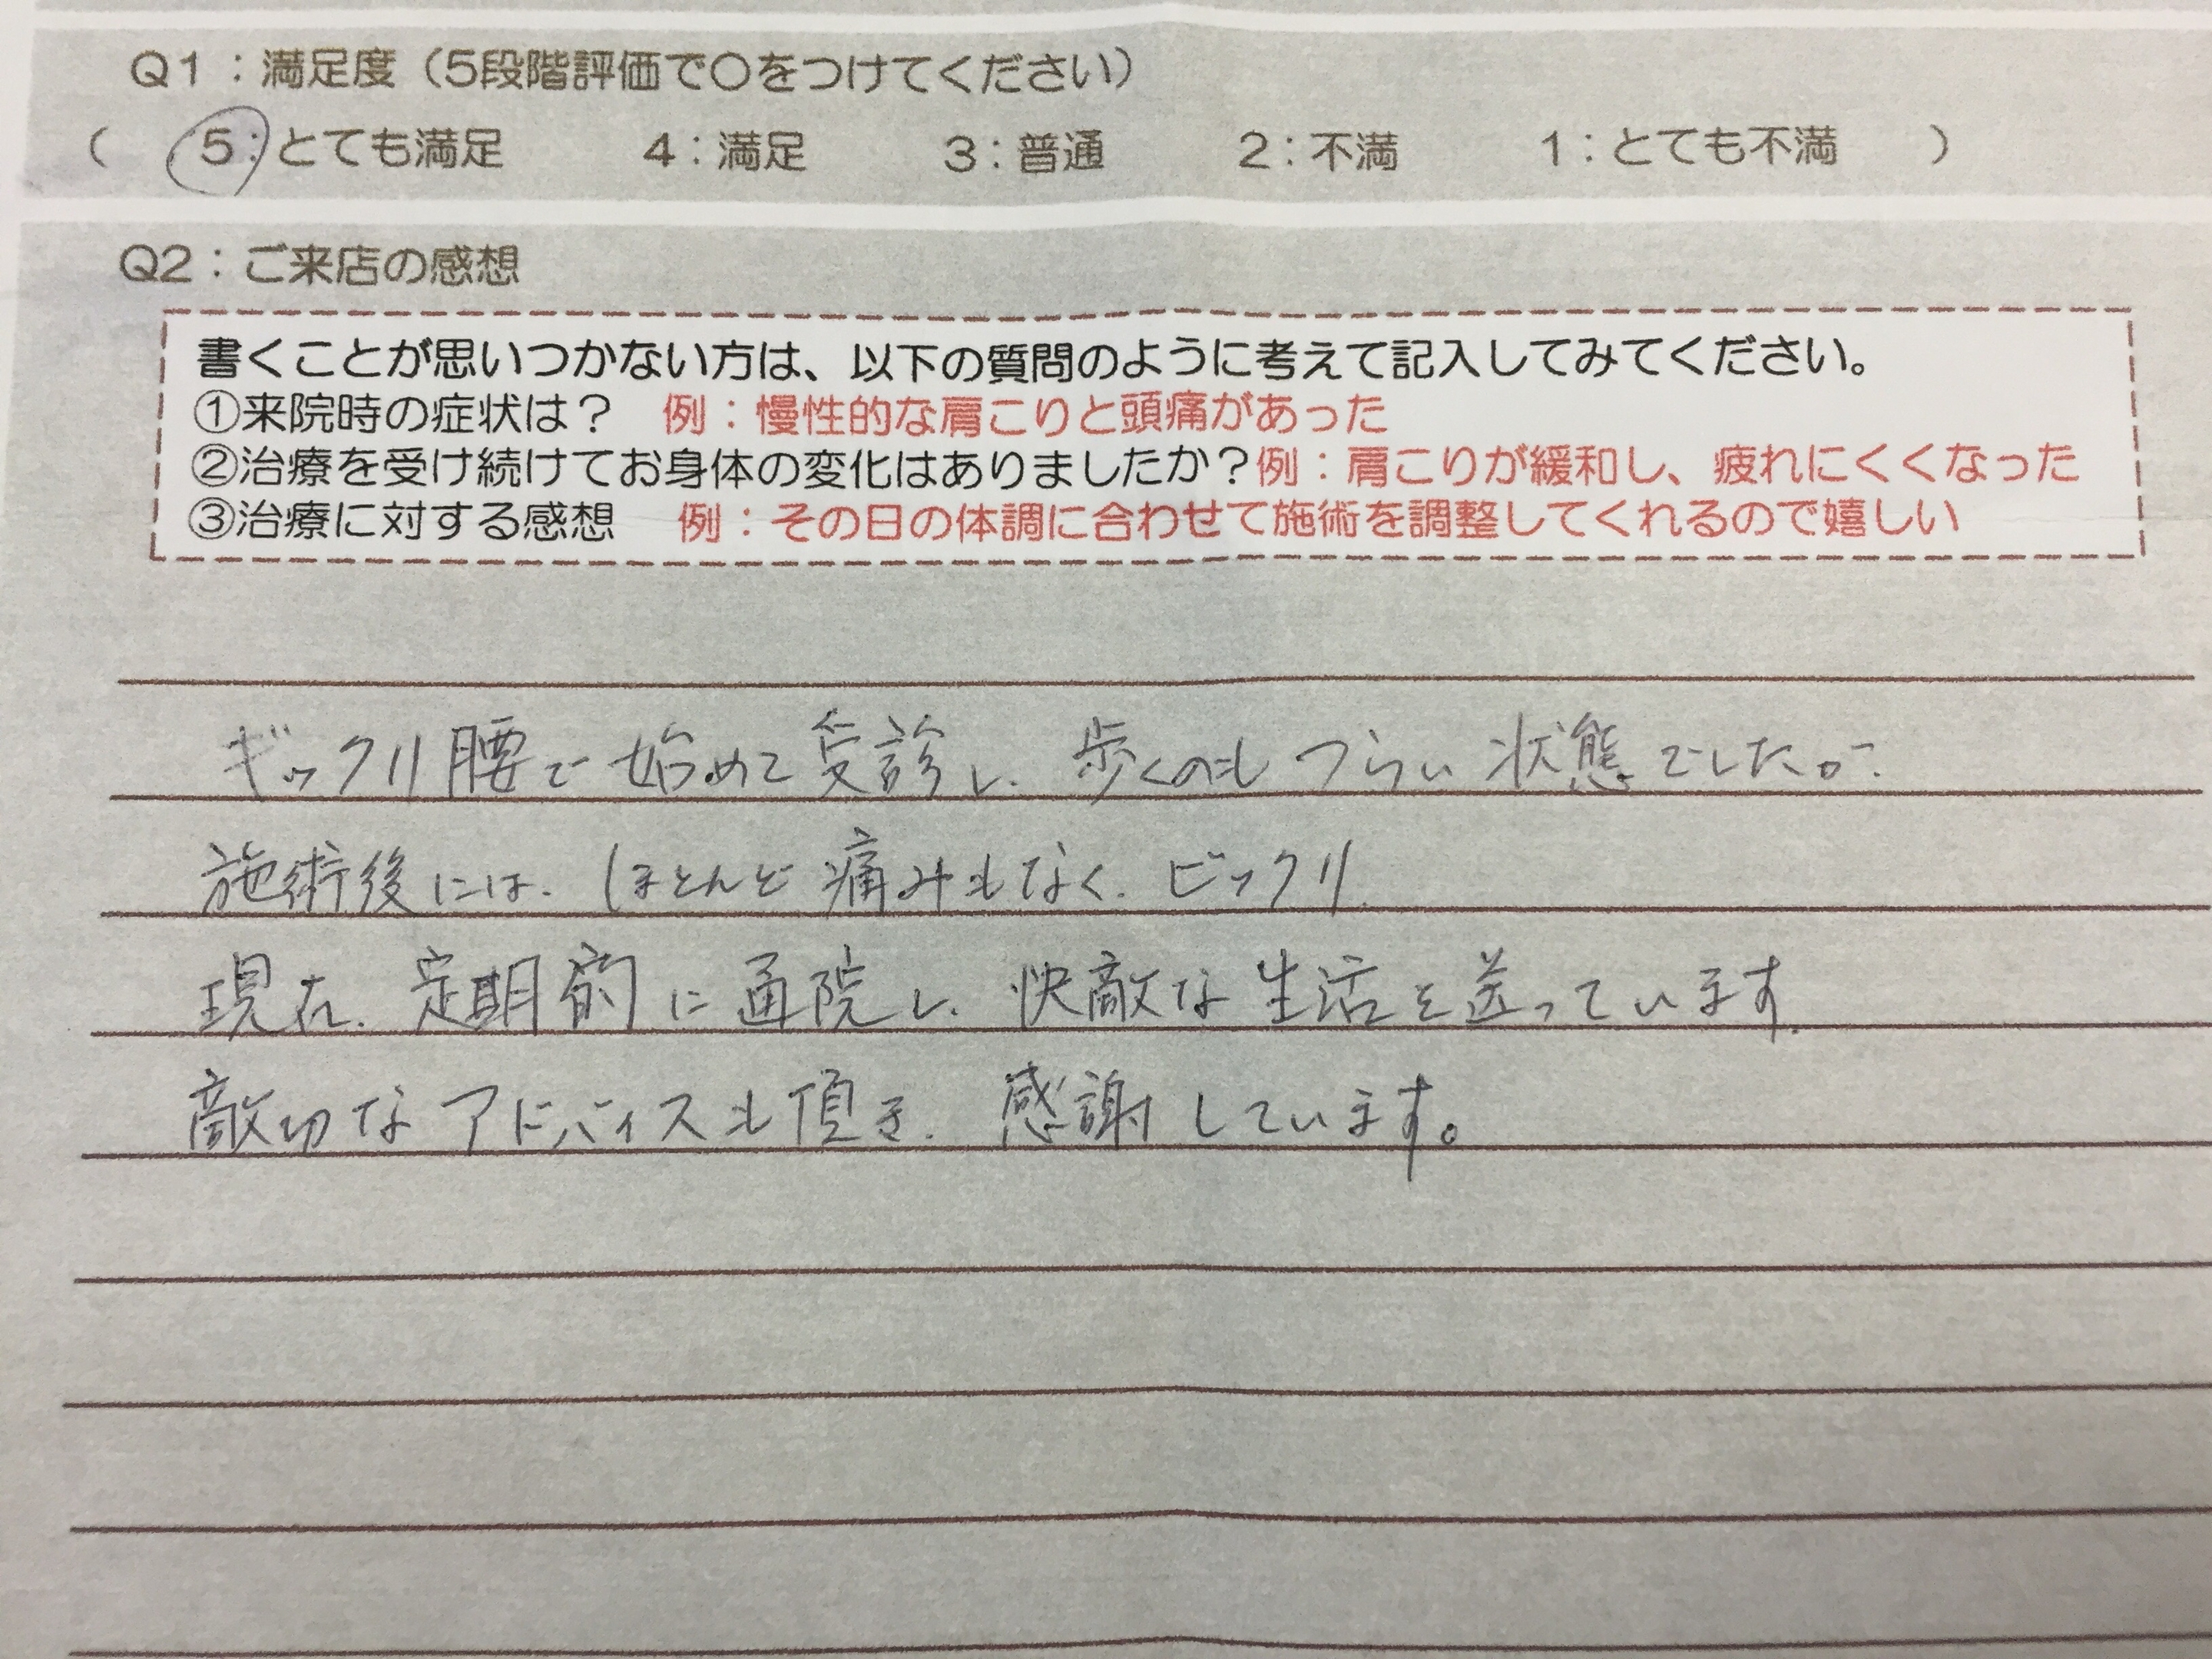 Q1：満足度（5段階評価で〇をつけてください）
（ 5：とても満足 4：満足 3：普通 2：不満 1：とても不満 ）
Q2：ご来店の感想
書くことが思いつかない方は、以下の質問のように考えて記入してみてください。
①来院時の症状は？ 例：慢性的な肩こりと頭痛があった
②治療を受け続けてお身体の変化はありましたか？例：肩こりが緩和し、疲れにくくなった
③治療に対する感想 例：その日の体調に合わせて施術を調整してくれるので嬉しい
ギックリ腰で始めて受診し、歩くのもつらい状態でしたが、
施術後には、ほとんど痛みもなく、ビックリ。
現在、定期的に通院し、快敵な生活を送っています。
敵切なアドバイスも頂き、感謝しています。